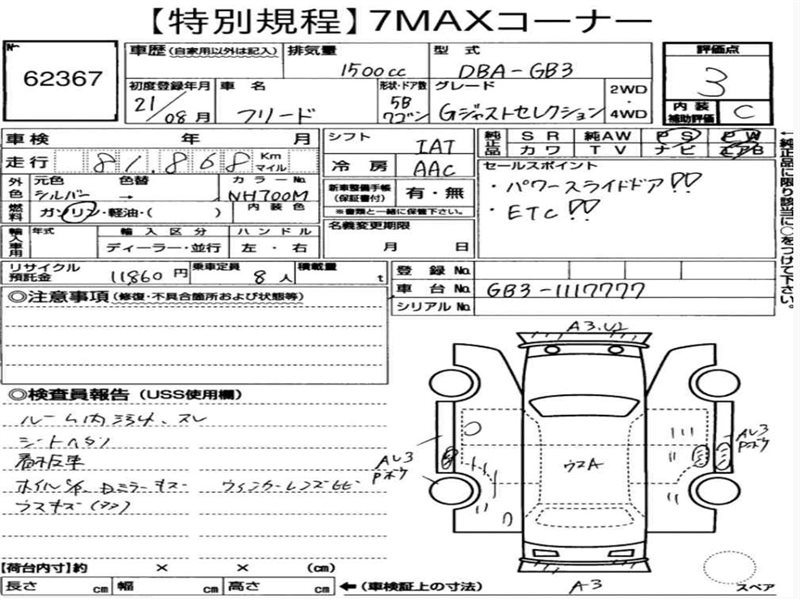 【特別規程】7MAXコーナー
No 62367
車歴(自家用以外は記入) 排気量 1500cc 型式 DBA-GB3 評価点 3
初度登録年月 21/08月 車名 フリード 形状・ドア数 5B ワゴン グレード Gジャストセレクション 2WD・4WD 内装補助評価 C
車検 年 月 シフト IAT 純正品 SR 純AW PS PW
カワ TV ナビ エアB
走行 81,868 Km マイル 冷房 AAC セールスポイント
外色 元色 シルバー 色替 → カラーNo. NH700M 新車整備手帳(保証書付) 有・無 ・パワースライドドア!!
※書類と一緒に保管下さい。 ・ETC!!
燃料 ガソリン・軽油・( ) 内装色 名義変更期限 月 日
輸入車用 年式 輸入区分 ハンドル
ディーラー・並行 左・右
リサイクル預託金 11860円 乗車定員 8人 積載量 t 登録No.
車台No. GB3-1117777
シリアルNo.
←純正品に限り該当に○をつけて下さい。
◎注意事項(修復・不具合箇所および状態等)
◎検査員報告(USS使用欄)
ルーム内
シートヘタリ
看板車
ウスキズ
A3.U2
AU3
Pボケ
ウスA
AU3
Pボケ
A3
スペア
【荷台内寸】約 × × (cm)
長さ cm 幅 cm 高さ cm ←(車検証上の寸法)